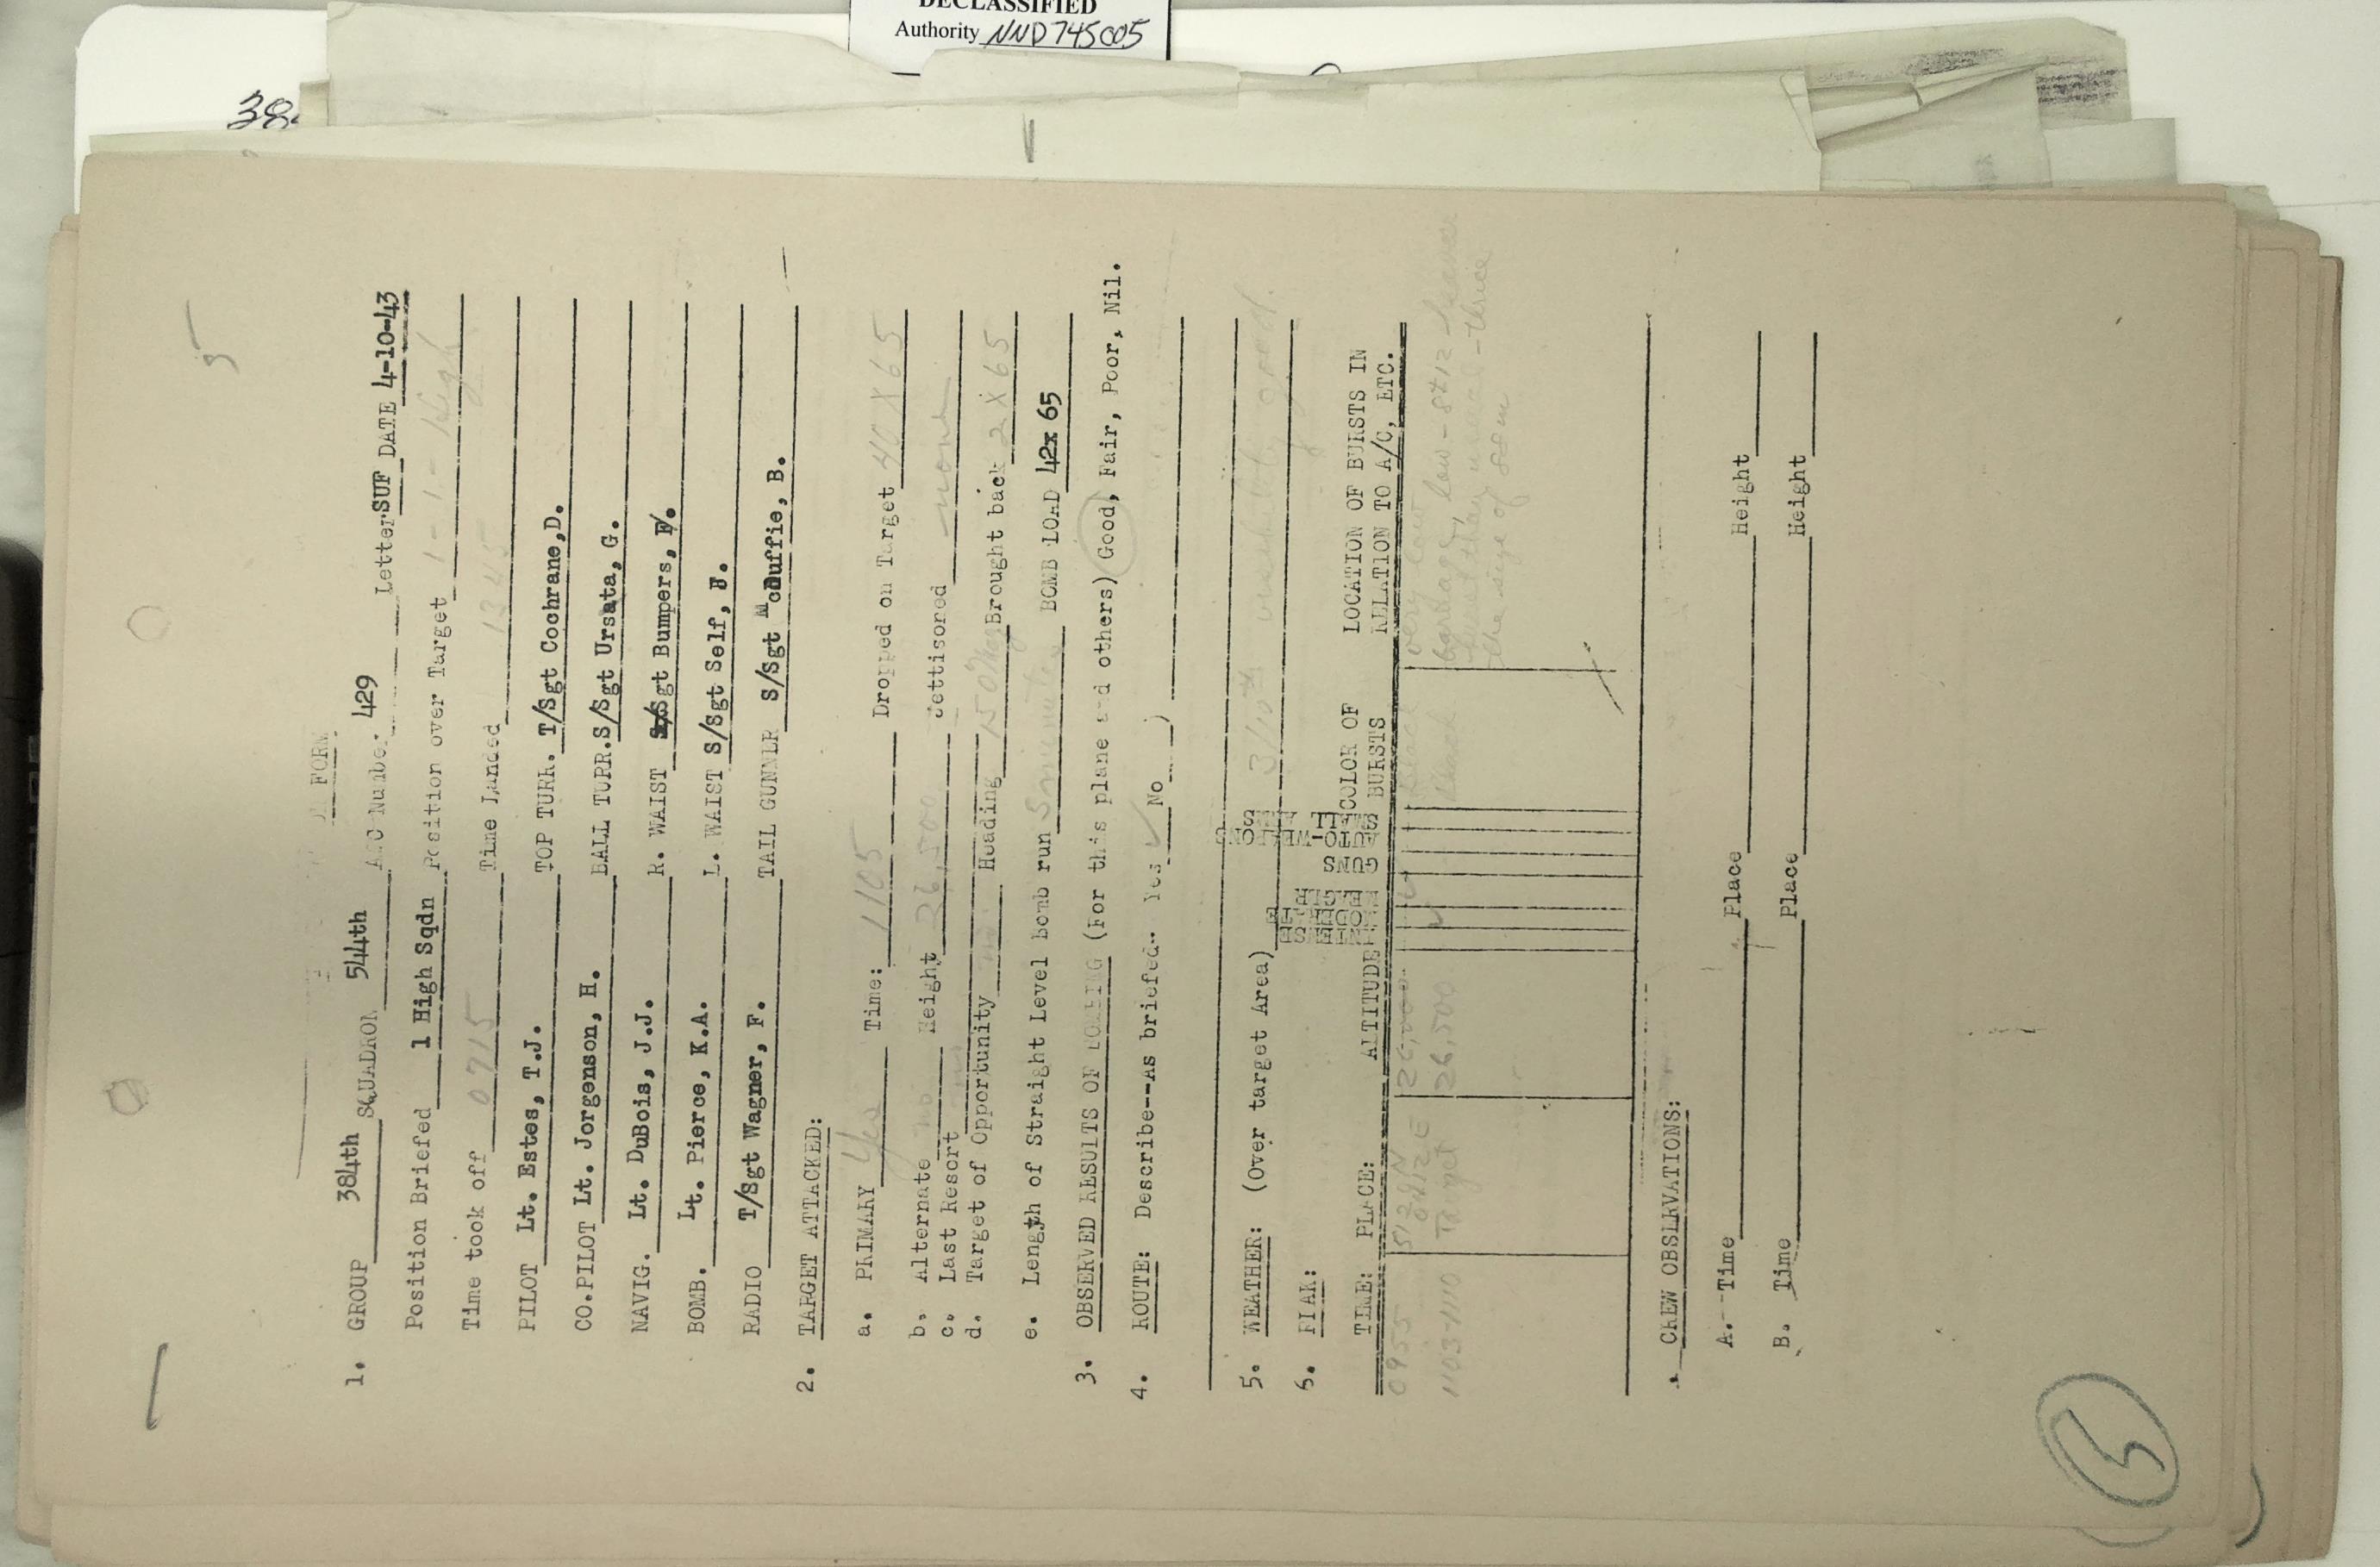 DECLASSIFIED
Authority NND745005
38
5
FORM
1. GROUP 384th SQUADRON 544th A/C Number 429 Letter SUF DATE 4-10-43
Position Briefed 1 High Sqdn Position over Target 1-1-High
Time took off 0715 Time Landed 1345
PILOT Lt. Estes, T.J. TOP TURR. T/Sgt Cochrane,D.
CO.PILOT Lt. Jorgenson, H. BALL TURR. S/Sgt Ursata, G.
NAVIG. Lt. DuBois, J.J. R. WAIST S/Sgt Bumpers, F.
BOMB. Lt. Pierce, K.A. L. WAIST S/Sgt Self, J.
RADIO T/Sgt Wagner, F. TAIL GUNNER S/Sgt McDuffie, B.
2. TARGET ATTACKED:
a. PRIMARY Yes Time: 1105 Dropped on Target 40 X 65
b. Alternate no Height 26,500 Jettisored none
c. Last Resort
d. Target of Opportunity no Heading 150 Mag Brought back 2 X 65
e. Length of Straight Level bomb run 5 minutes BOMB LOAD 42x 65
3. OBSERVED RESULTS OF BOMBING (For this plane and others) Good, Fair, Poor, Nil.
4. ROUTE: Describe--As briefed-- Yes ✓ No )
5. WEATHER: (Over target Area) 3/10th good.
6. FLAK:
TIME: PLACE: ALTITUDE INTENSE MODERATE MEAGER GUNS AUTO-WEAPONS SMALL ARMS COLOR OF BURSTS LOCATION OF BURSTS IN RELATION TO A/C, ETC.
0955 5129N Black very low
1103-1110 Target 26,500 Black barrage, low - 8 + 12
than usual - thrice
the size of 88m
CREW OBSERVATIONS:
A.--Time Place Height
B. Time Place Height
5